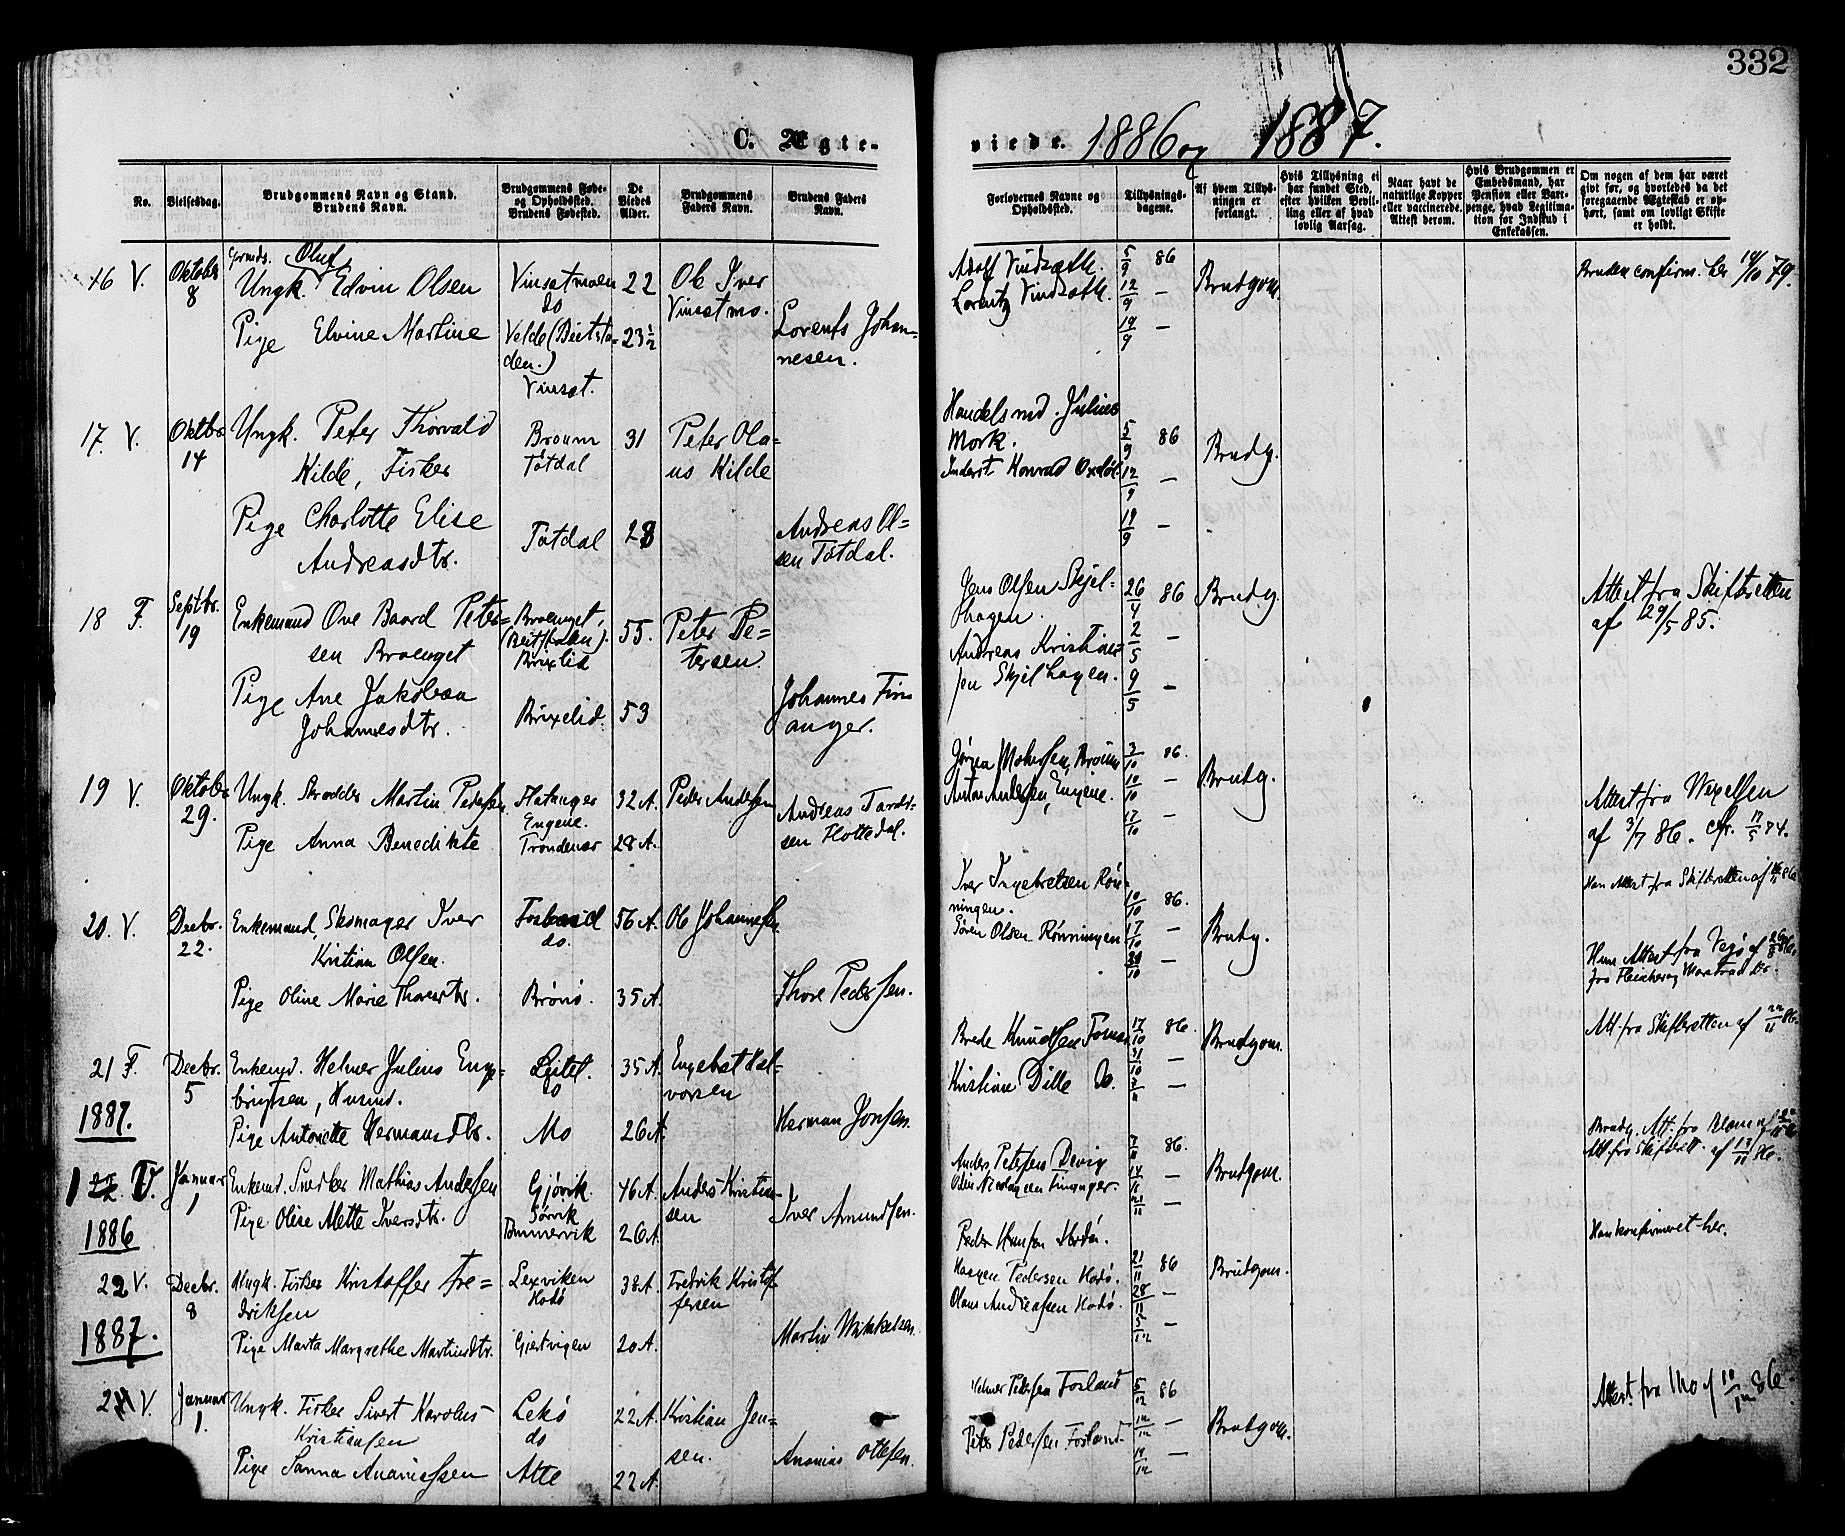 332
C. Ægte-
viede. 1886 og 1887.
No.
Vielsesdag.
Brudgommens Navn og Stand.
Brudens Navn.
Brudgommens Føde-
og Opholdssted.
Brudens Fødested.
De
Viedes
Alder.
Brudgommens
Faders Navn.
Brudens Faders
Navn.
Forlovernes Navne og
Opholdssted.
Tillysnings-
dagene.
Af hvem Tillys-
ningen er
forlangt.
Hvis Tillysning ei
har fundet Sted,
efter hvilken Bevil-
ling eller af hvad
lovlig Aarsag.
Naar havt de
naturlige Kopper
eller vaccinerede.
Attest derom.
Hvis Brudgommen er
Embedsmand, har
Pension eller Vart-
penge, hvad Legitima-
tion for Indskud i
Enkekassen.
Om nogen af dem har været
givt før, og hvorledes da det
foregaaende Ægteskab er op-
hørt, samt om lovligt Skifte
er holdt.
16 V.
Oktober
8
Oluf
Ungk. Edvin Olsen
Pige Elvine Martine
Vinsatmoen
do
Velde (Beitsta-
den.)
Vinsat.
22
23 1/2
Ole Iver
Vinsatmo.
Lorents Johan-
nesen.
Adolf Vindsæth.
Lorentz Vindsæth.
5/9 86
12/9 —
19/9 —
Brudgom.
Bruden confirm. her 19/10 79.
17. V.
Oktbr
14
Ungk. Peter Thorvald
Hilde, Fisker
Pige Charlotte Elise
Andreasdtr.
Broum
Tøtdal
Tøtdal
31
28
Peter Ola-
us Hilde
Andreas Ol-
sen Tøtdal.
Handelsmd. Julius
Mork.
Inderst Konrad
5/9 86
12/9 —
19/9 —
Brudg.
18 F.
Septbr.
19
Enkemand Ove Baard Peter-
sen Braenget
Pige Ane Jakobea
Johannesdtr.
Braenget,
(Beitstaden).
Brixelid
Brixelid.
55.
53
Peter Pe-
tersen
Johannes Fin
anger.
Jens Olsen Skjel-
hagen.
Andreas Kristian-
sen Skjelhagen.
26/4 86
2/5 —
9/5 —
Brudg.
Attest fra Skifteretten
af 29/5 85.
19 V.
Oktober
29.
Ungk. Skrædder Martin Pedersen
Pige Anna Benedikte
Flatanger
Engene.
Trondenæs
32 A.
28 A.
Peder Andersen
Andreas
sen Flottedal.
Anton Andersen, Engene.
3/10 86.
10/10 —
17/10 —
Brudg.
Attest fra Wexelsen
af 3/7 86. cfr. 17/5 74.
20. V.
Decbr.
22.
Enkemand, Skomager Iver
Kristian Olsen.
Pige Oline Marie Thoresdtr.
do.
Brønø.
56 A.
35 A.
Ole Johannessen
Thore Pedersen.
Iver Ingebretsen Røn-
ningen.
Søren Olsen Rønningen
10/10 86.
17/10 —
/10 —
Brudg.
Han Attest fra Skifteretten af
Hun Attest fra Vegø af
21 F.
Decbr.
5
Enkemd. Helmer Julius Enge-
brigtsen, Husmd.
Pige Antonette Hermansdtr.
do
Mo
35 A.
26 A.
Engebrt Hal-
vorsen
Herman Jonsen.
Brede Knudsen
Kristian Dille
17/10 86.
31/10 —
Brudgom.
Att. fra Skifteretten af 86.
1887.
1 V.
Januar
1
Enkemd. Snedker Mathias Andersen
Pige Oline Mette Iversdtr.
Gjøvik.
Tømmervik
46 A.
26 A.
Anders Kristian-
sen
Iver Amundsen.
Anders Petersen Devig
Odin Nicolaysen Finanger.
86.
14/11 —
21/11 —
Brudgom.
Att. fra Skifterett. af 13/11 86.
1886
22 V.
Decbr.
8
Ungk. Fisker Kristoffer Fre-
driksen
Pige Marta Margrethe Martinsdtr.
Lexviken
Hodø
Gjertvigen
38 A.
20 A.
Fredrik Kristof
fersen
Martin Mikkelsen.
Peder Hansen Hodø.
Haagen Pedersen Hodø.
Olaus Andreassen Hodø.
21/11 86
28/11 —
5/12 —
Brudgom.
Han konfirmeret her.
1887.
2 V.
Januar
1.
Ungk. Fisker Sivert Karolus
Kristiansen
Pige Sanna Ananiassen
Lekø
do
Alte
22 A.
22 A.
Kristian Jen-
sen.
Ananias Ottesen.
Helmer Pedersen Forland
Peter Pedersen Forland
5/12 86
12/12 —
19/12 —
Brudgom.
Attest fra Mo af 10/12 86.